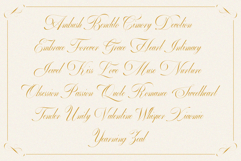 Ambush Bramble Convey Devotion
Embrace Forever Grace Heart Intimacy
Jewel Kiss Love Muse Nurture
Obsession Passion Quote Romance Sweetheart
Tender Unity Valentine Whisper Xoxoxo
Yearning Zeal